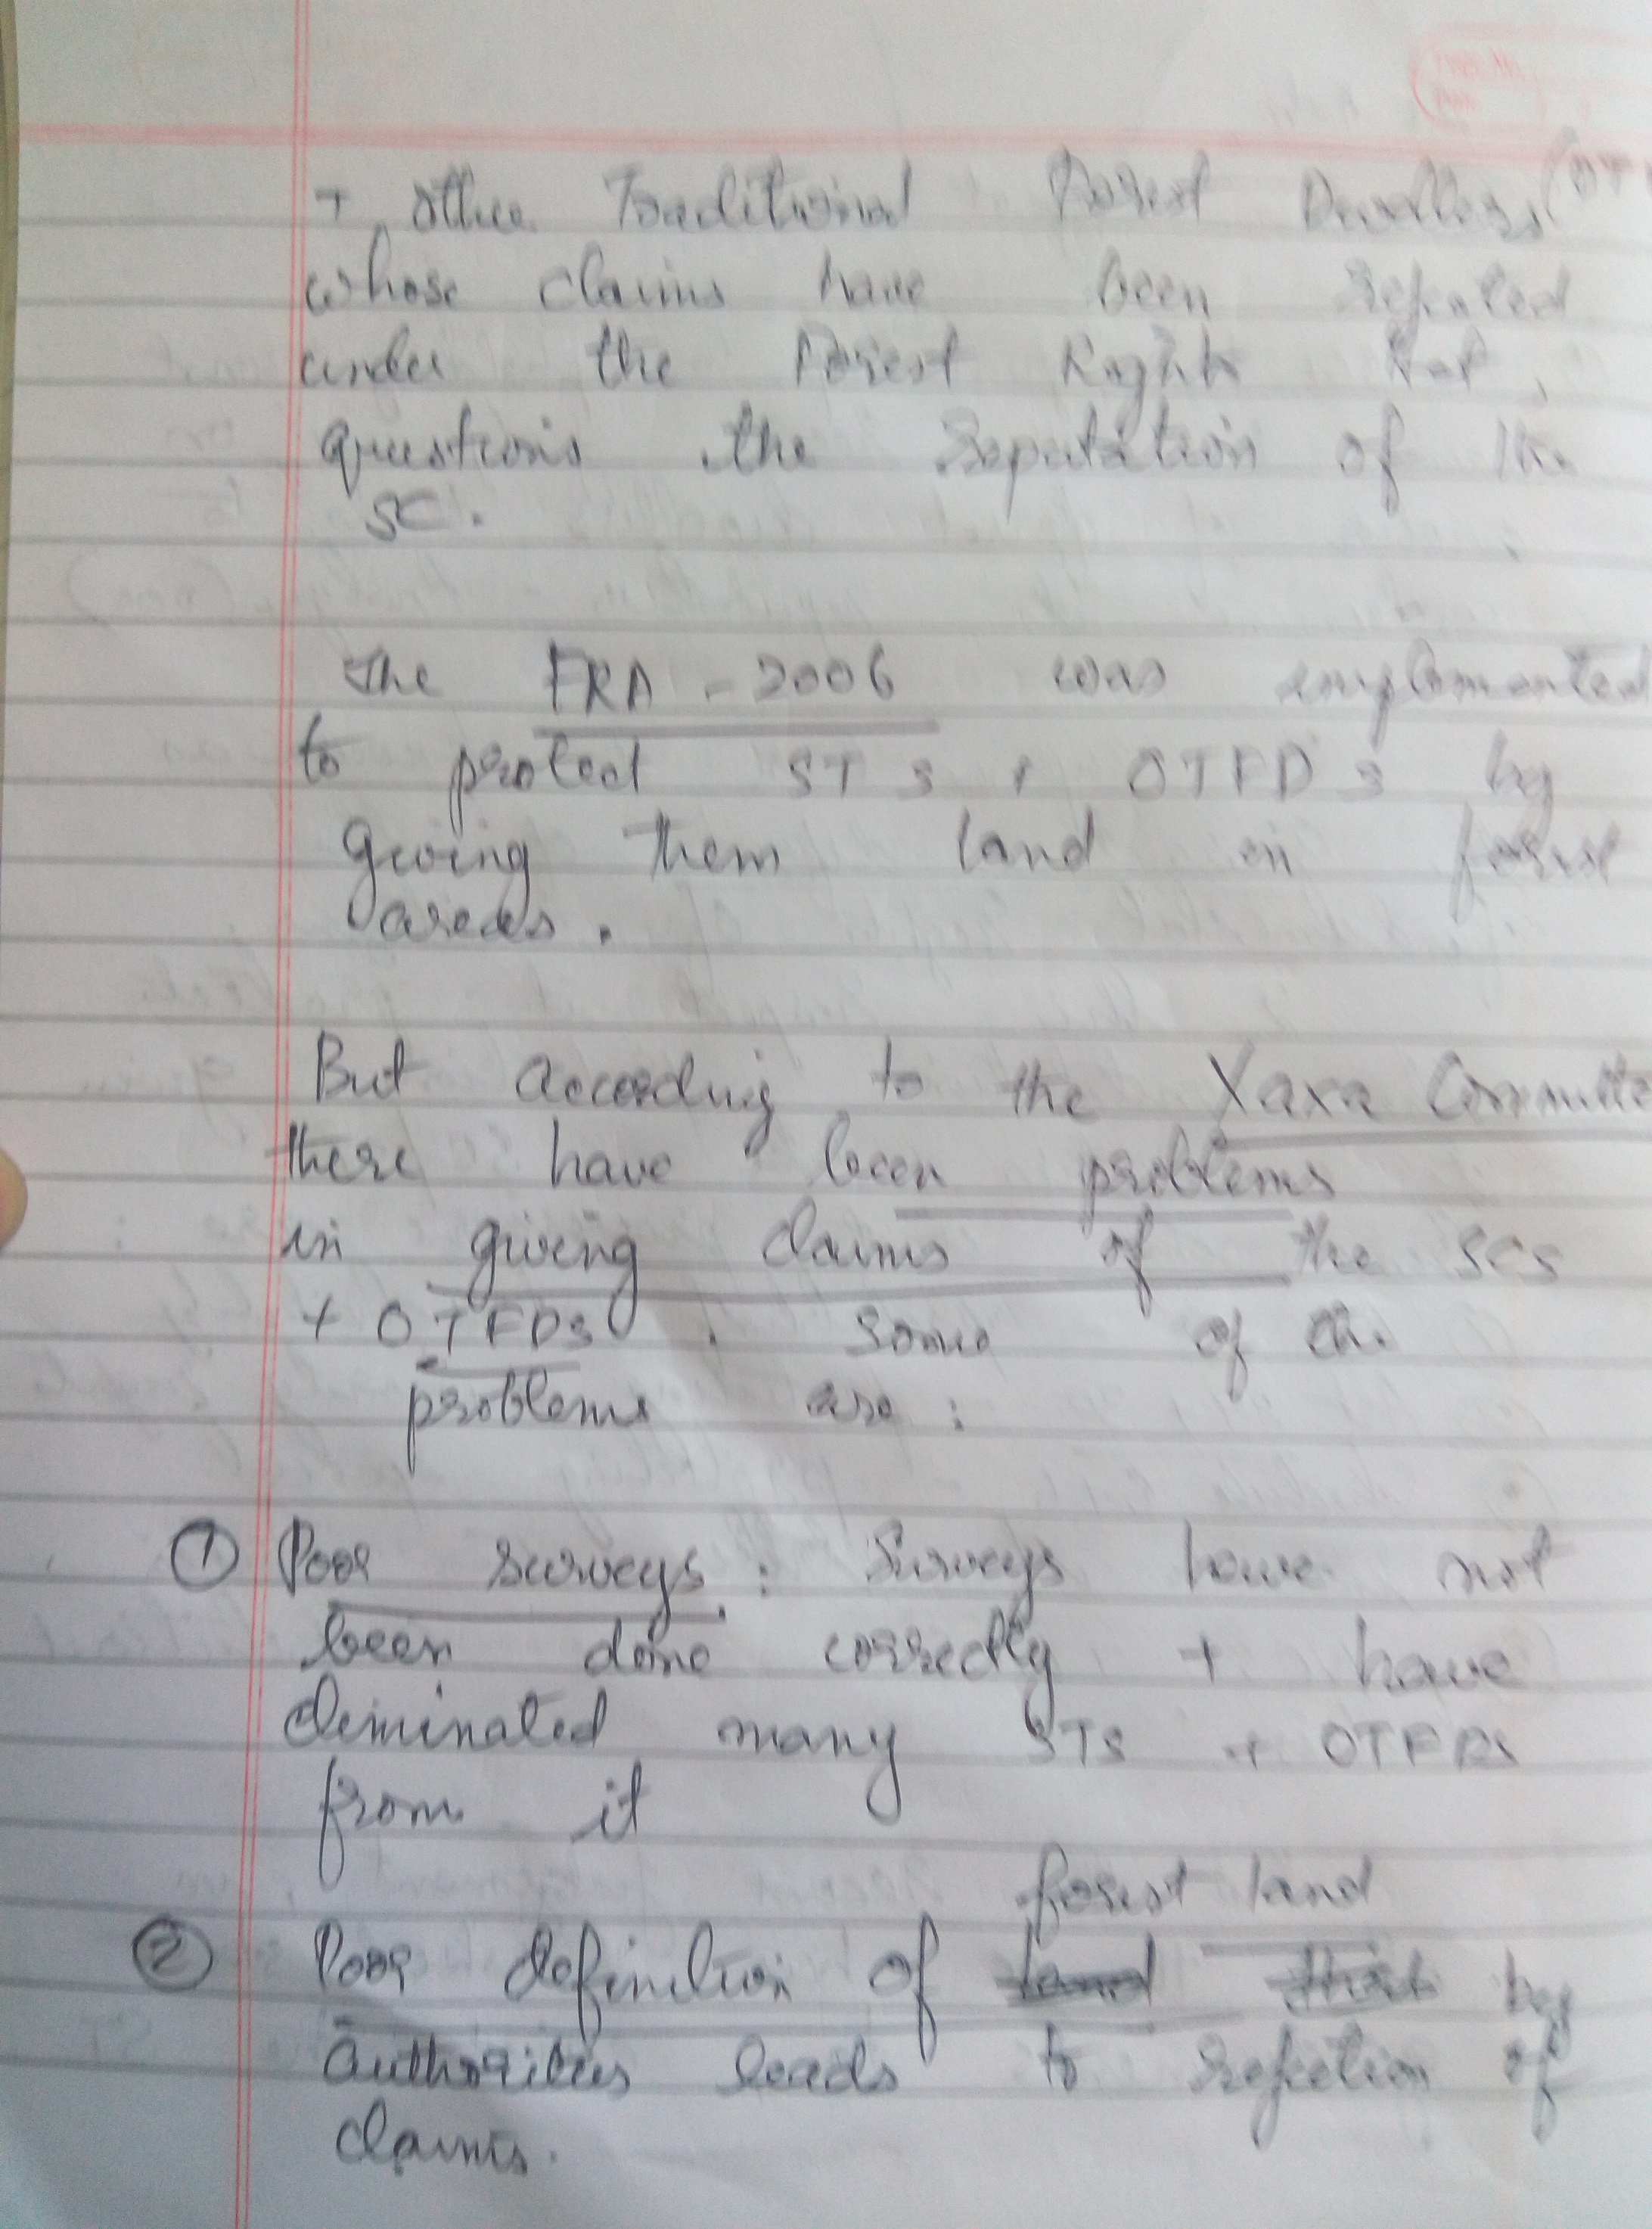 + other Traditional Forest Dwellers (OT
whose claims have been rejected
under the Forest Rights Act,
questions the reputation of the
SC.
The FRA - 2006 was implemented
to protect STs + OTFDs by
giving them land in forest
areas.
But according to the Xaxa Committe
there have been problems
in giving claims of the SCs
+ OTFDs. Some of the
problems are:
① Poor surveys: Surveys have not
been done correctly + have
eliminated many STs + OTFDs
from it
forest land
② Poor definition of land by
authorities leads to rejection of
claims.